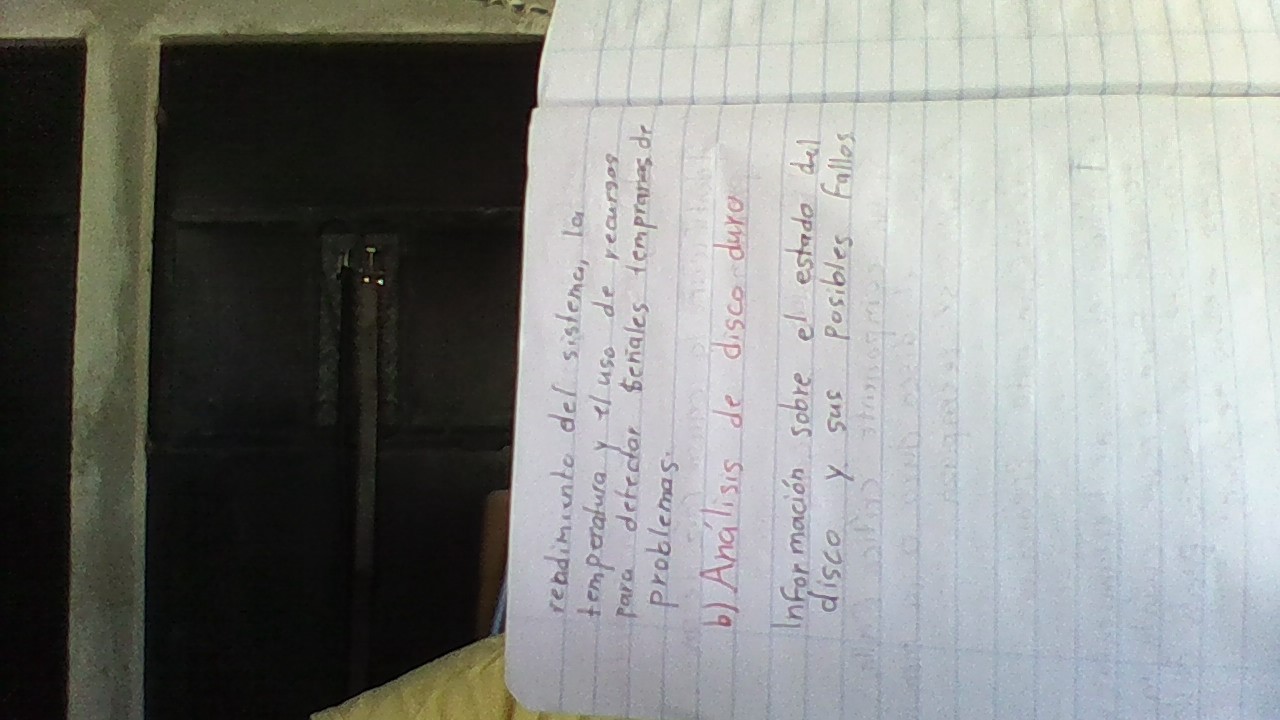 rendimiento del sistema, la
temperatura y el uso de recursos
para detectar señales tempranas de
problemas.
b) Análisis de disco duro
Información sobre el estado del
disco y sus posibles fallos